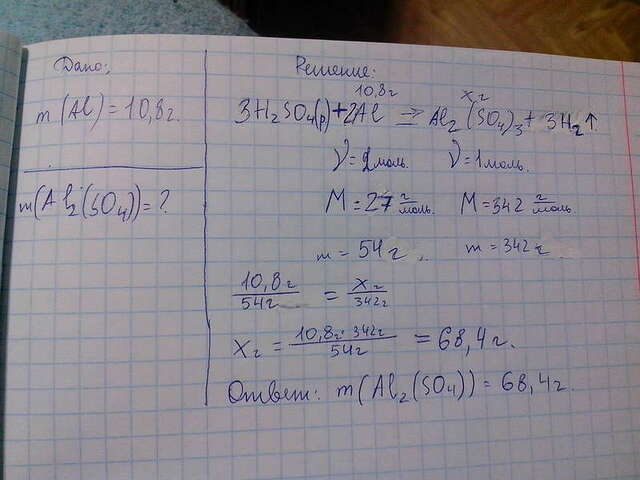 Дано:
m (Al) = 10,8г.
m(Al2(SO4)) = ?
Решение:
10,8г xг
3H2SO4(р) + 2Al => Al2(SO4)3 + 3H2↑
ν = 2моль. ν = 1моль.
M = 27 г/моль. M = 342 г/моль
m = 54г. m = 342г.
10,8г/54г = xг/342г
xг = 10,8г · 342г/54г = 68,4г.
Ответ: m(Al2(SO4)) = 68,4г.